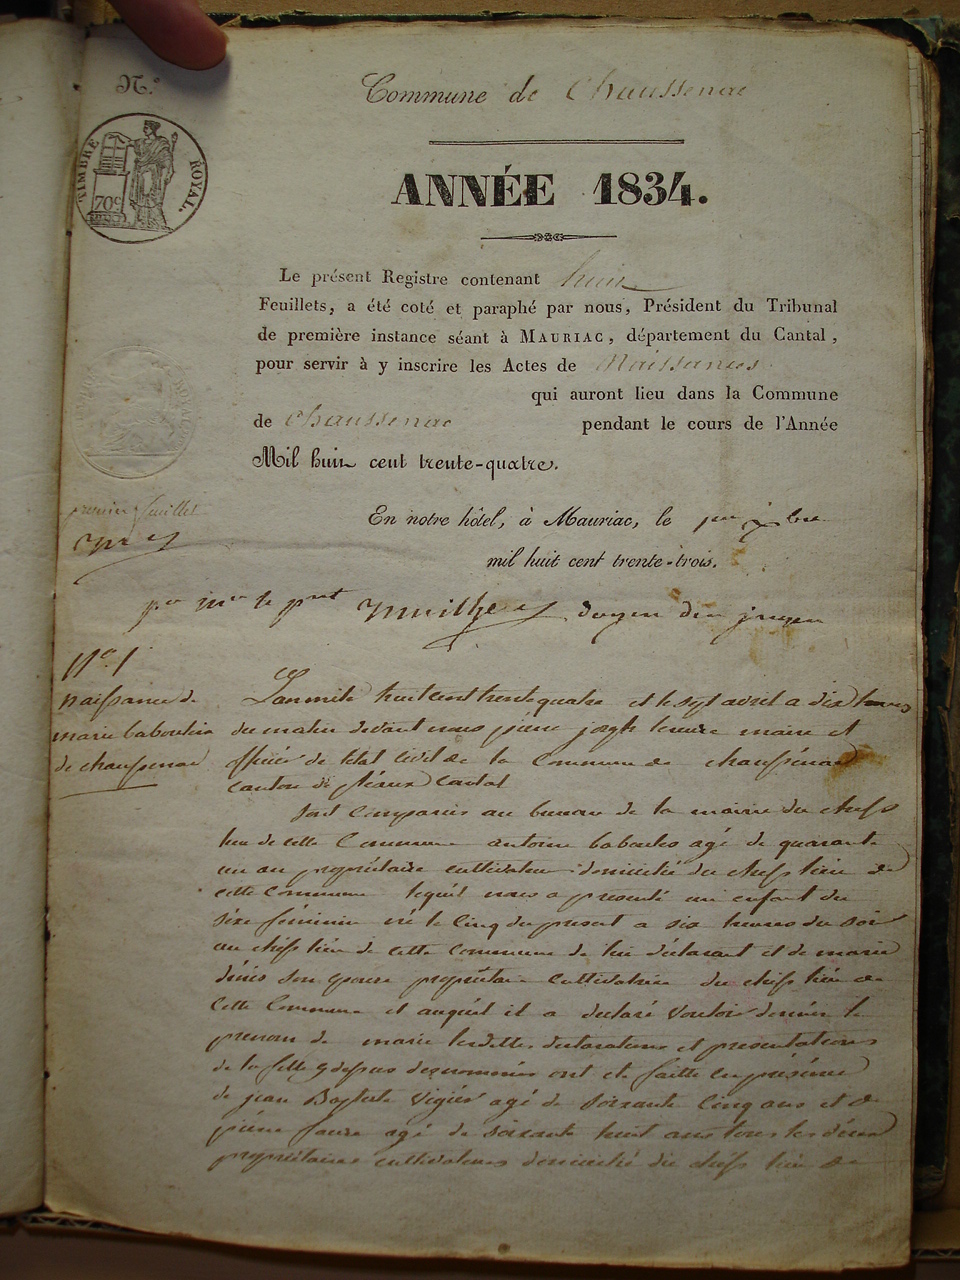 N.º
Commune de Chaussenac
TIMBRE ROYAL.
70c
ANNÉE 1834.
Le présent Registre contenant huit
Feuillets, a été coté et paraphé par nous, Président du Tribunal
de première instance séant à MAURIAC, département du Cantal,
pour servir à y inscrire les Actes de Naissances
qui auront lieu dans la Commune
de Chaussenac pendant le cours de l'Année
Mil huit cent trente-quatre.
premier feuillet
En notre hôtel, à Mauriac, le
mil huit cent trente-trois.
doyen des juges
Nº 1
naissance de
marie
de chaussenac
Lan mile huit cent trente quatre et le sept avril a dix heures
du matin devant nous pierre joseph maire et
officier de letat civil de la Commune de chaussenac
canton de pleaux Cantal
Sont Comparus au bureau de la mairie du cheff
lieu de cette Commune antoine agé de quarante
un an propriétaire cultivateur domicilié du cheff lieu de
cette commune lequel nous a presenté un enfant du
sexe féminin né le cinq du present a six heures du soir
au cheff lieu de cette commune de lui déclarant et de marie
son epouse propriétaire cultivatrice du cheff lieu de
cette Commune et auquel il a declaré vouloir donner le
prenom de marie lesdittes declarations et presentations
de la fille ont été faitte en présence
de jean Baptiste vigier agé de soixante cinq ans et de
pierre faure agé de soixante huit ans tous les deux
propriétaires cultivateurs domicilié du cheff lieu de